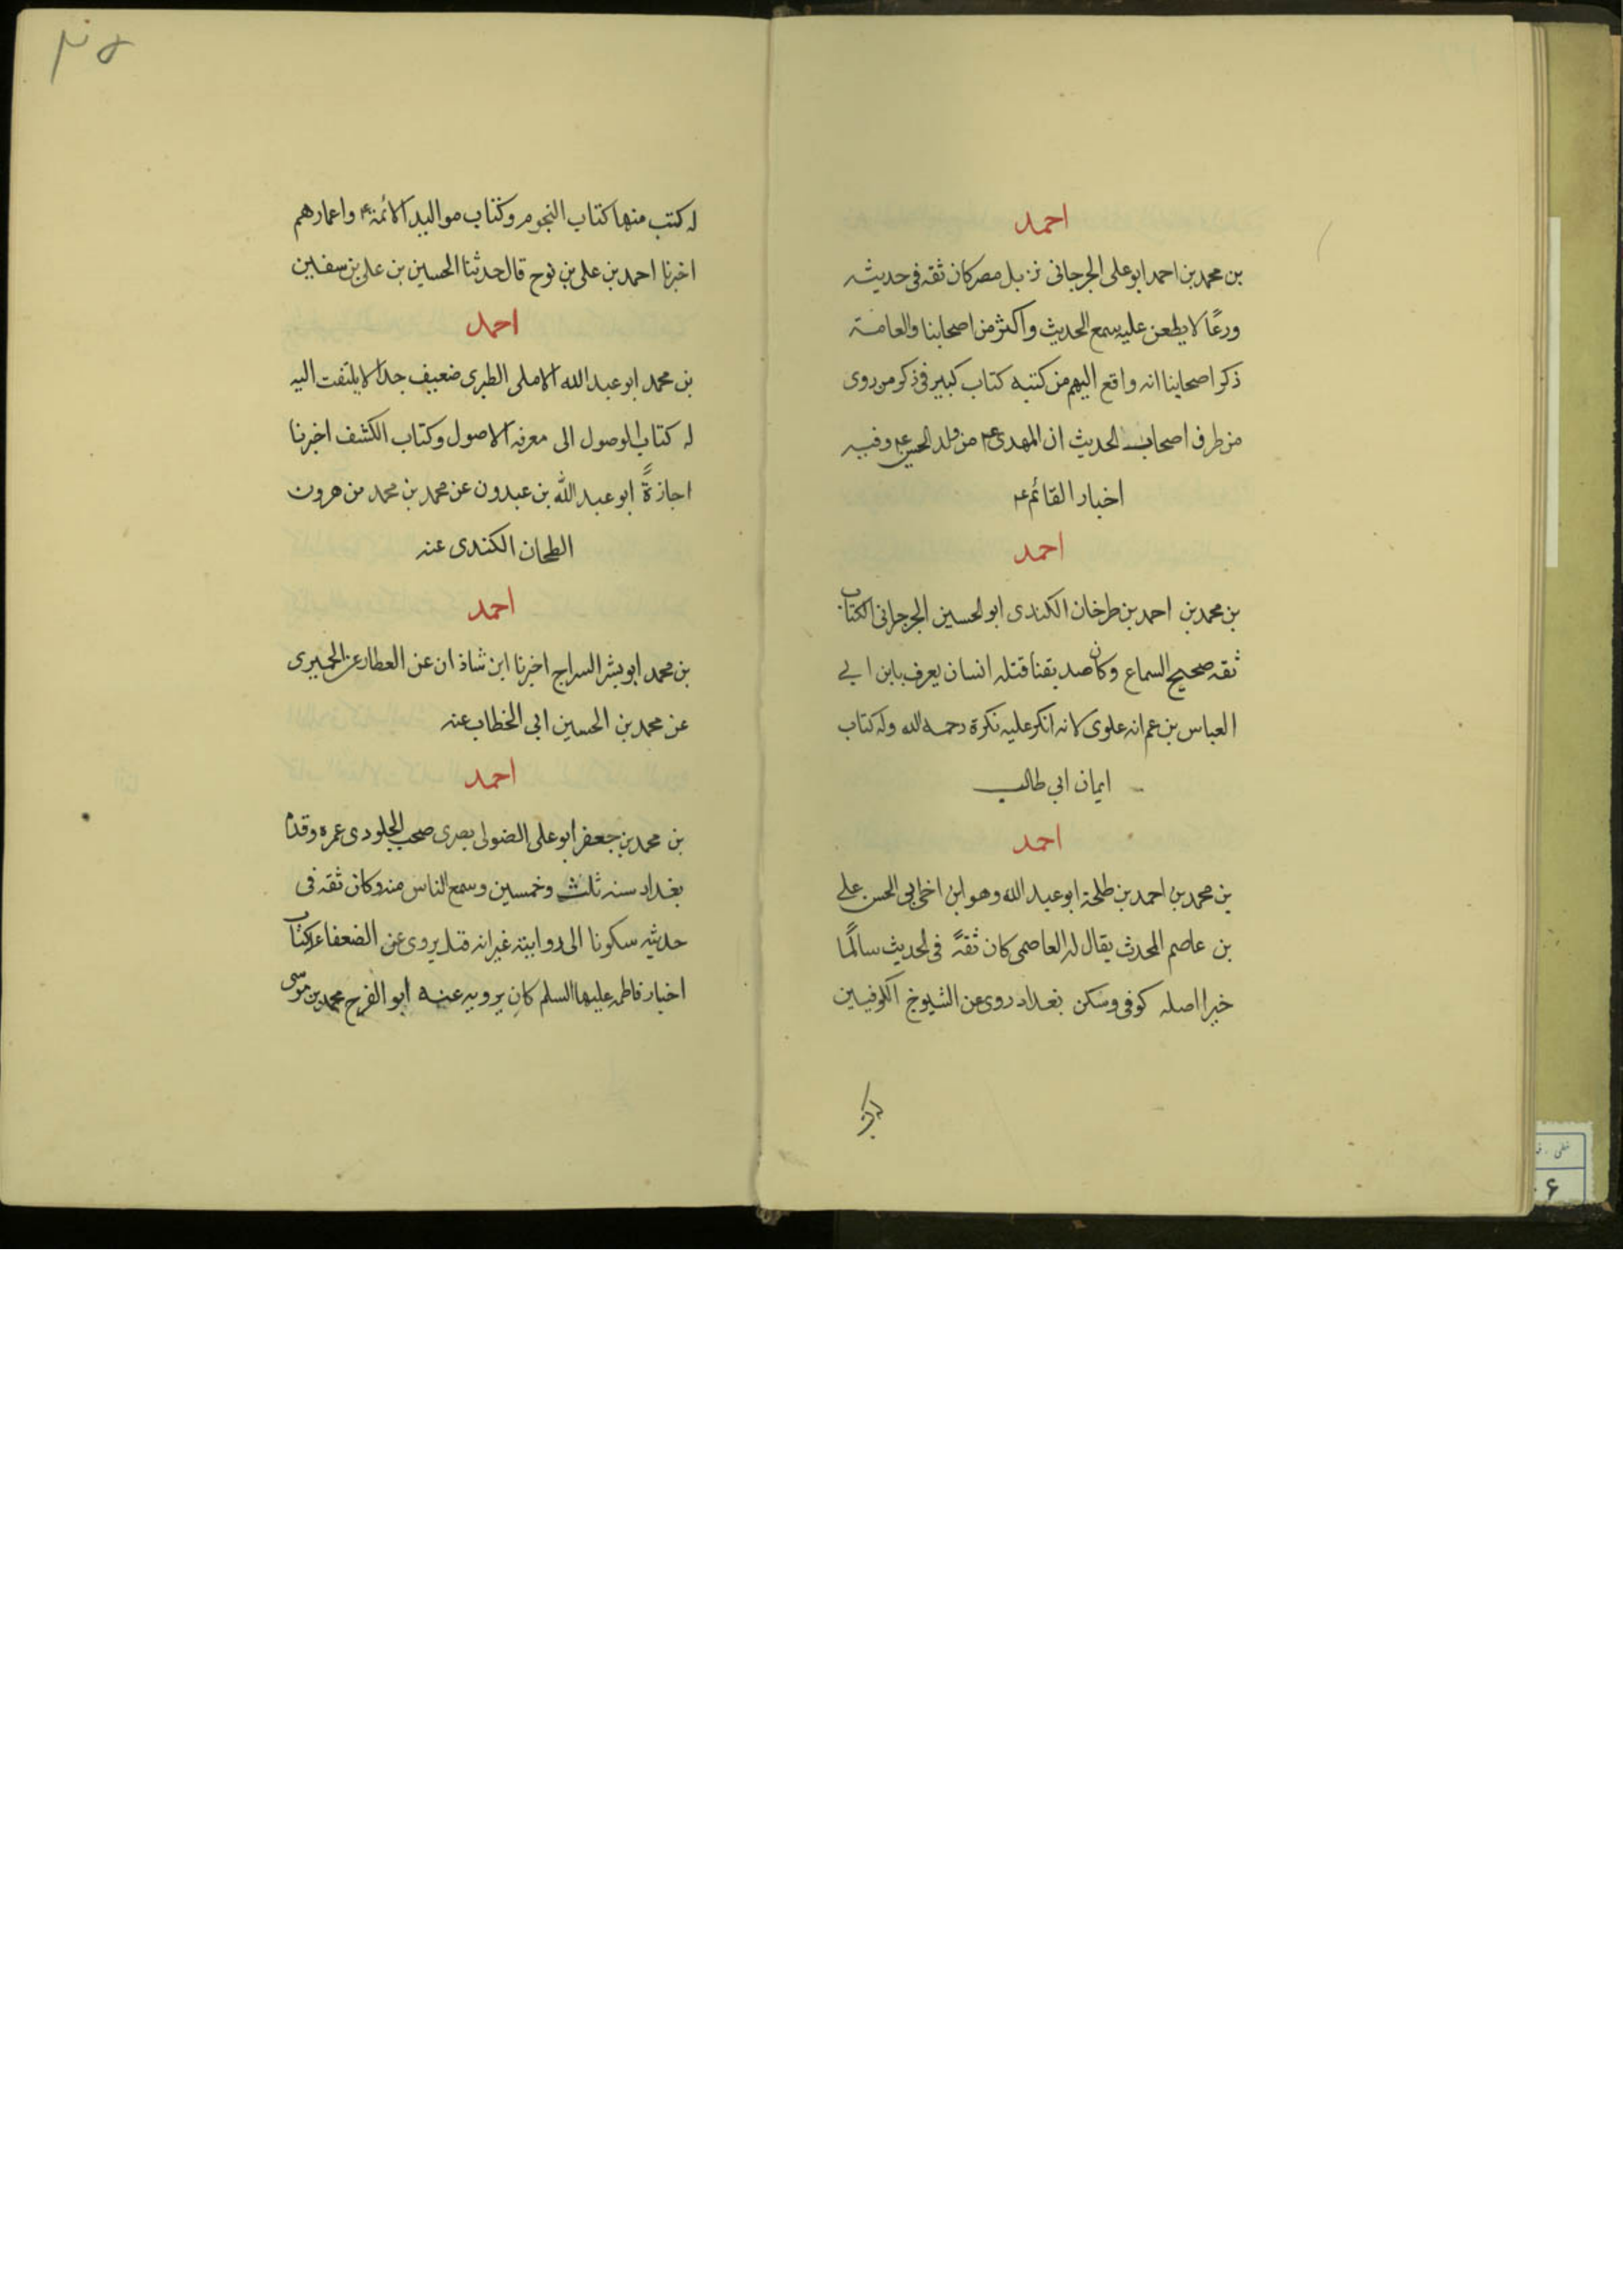 احمد
بن محمد بن احمد ابو على الجرجانى نزيل مصر كان ثقه فى حديثه
ورعًا لا يطعن عليه سمع الحديث واكثر من اصحابنا والعامة
ذكر اصحابنا انه واقع اليهم من كتبه كتاب كبير فى ذكر من روى
من طرق اصحاب الحديث ان المهدى ع من ولد الحسين ع وفيه
اخبار القائم ع
احمد
بن محمد بن احمد بن طرخان الكندى ابو الحسين الجرجرانى الكتاب
ثقه صحيح السماع وكان صديقنا قتله انسان يعرف بابن ابى
العباس بن عم انه علوى لانه انكر عليه نكرة رحمه الله وله كتاب
ايمان ابى طالب
احمد
بن محمد بن احمد بن طلحة ابو عبد الله وهو ابن اخى ابى الحسن على
بن عاصم المحدث يقال له العاصمى كان ثقةً فى الحديث سالمًا
خيرا اصله كوفى وسكن بغداد روى عن الشيوخ الكوفيين
له كتب
٣٥
له كتب منها كتاب النجوم وكتاب مواليد الائمة ع واعمارهم
اخبرنا احمد بن على بن نوح قال حدثنا الحسين بن على بن سفين
احمد
بن محمد ابو عبد الله الاملى الطبرى ضعيف جدا لا يلتفت اليه
له كتاب الوصول الى معرفه الاصول وكتاب الكشف اخبرنا
اجازةً ابو عبد الله بن عبدون عن محمد بن محمد من هرون
الطحان الكندى عنه
احمد
بن محمد ابو بشر السراج اخبرنا ابن شاذان عن العطار عن الحميرى
عن محمد بن الحسين ابى الخطاب عنه
احمد
بن محمد بن جعفر ابو على الصولى بصرى صحب الجلودى عمره وقدم
بغداد سنه ثلث وخمسين وسمع الناس منه وكان ثقه فى
حديثه سكونا الى روايته غير انه قيل يروى عن الضعفا له كتاب
اخبار فاطمه عليها السلم كان يرويه عنه ابو الفرج محمد بن موسى